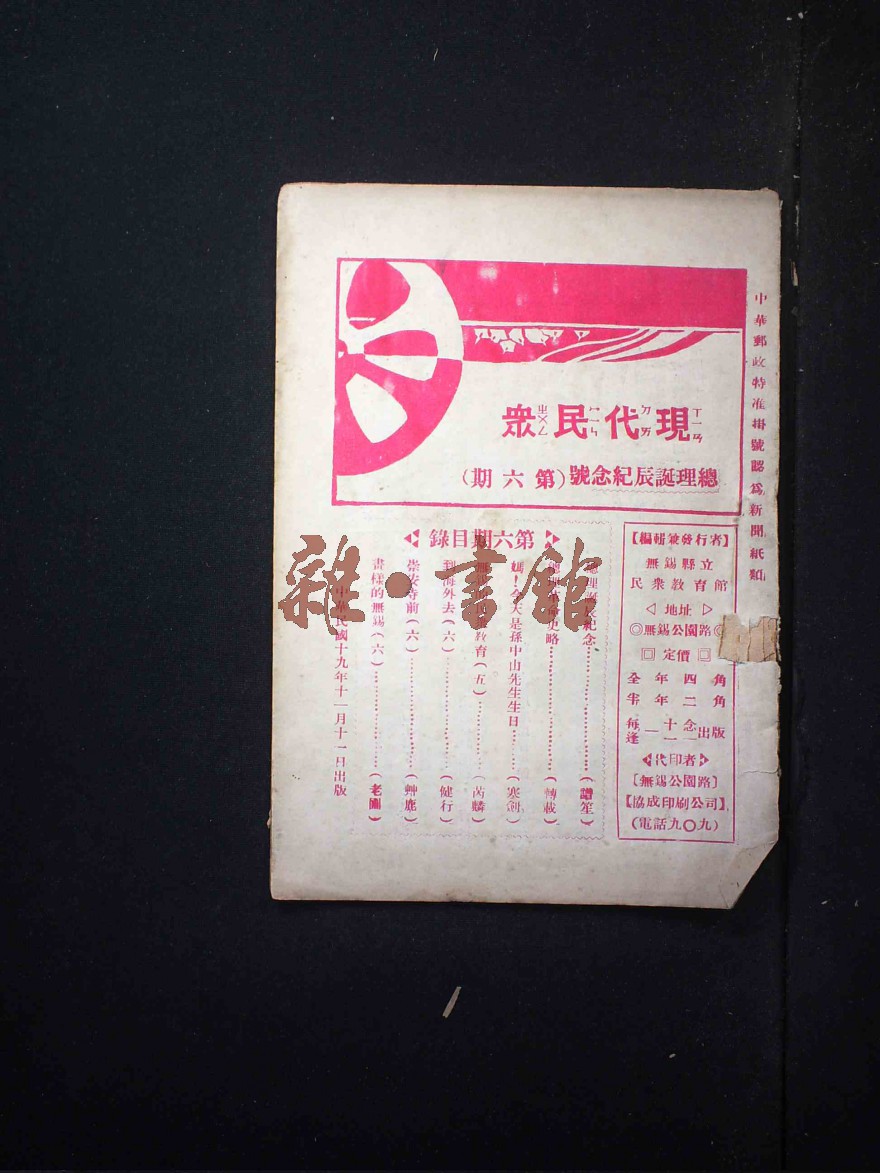 中華郵政特准掛號認爲新聞紙類
現代民衆
ㄒㄧㄢ ㄉㄞ ㄇㄧㄣ ㄓㄨㄥ
總理誕辰紀念號(第六期)
【編輯兼發行者】
無錫縣立
民衆教育館
◁地址▷
◎無錫公園路◎
回定價回
全年四角
半年二角
每逢一十一念一出版
◀代印者▶
〔無錫公園路〕
【協成印刷公司】
(電話九〇九)
第六期目錄
總理誕辰紀念(譜笙)
總理革命史略(轉載)
今天是孫中山先生生日(寒劍)
教育(五)(芮麟)
到海外去(六)(健行)
崇安寺前(六)(艸鹿)
畫樣的無錫(六)(老圃)
中華民國十九年十一月十一日出版
雜·書館